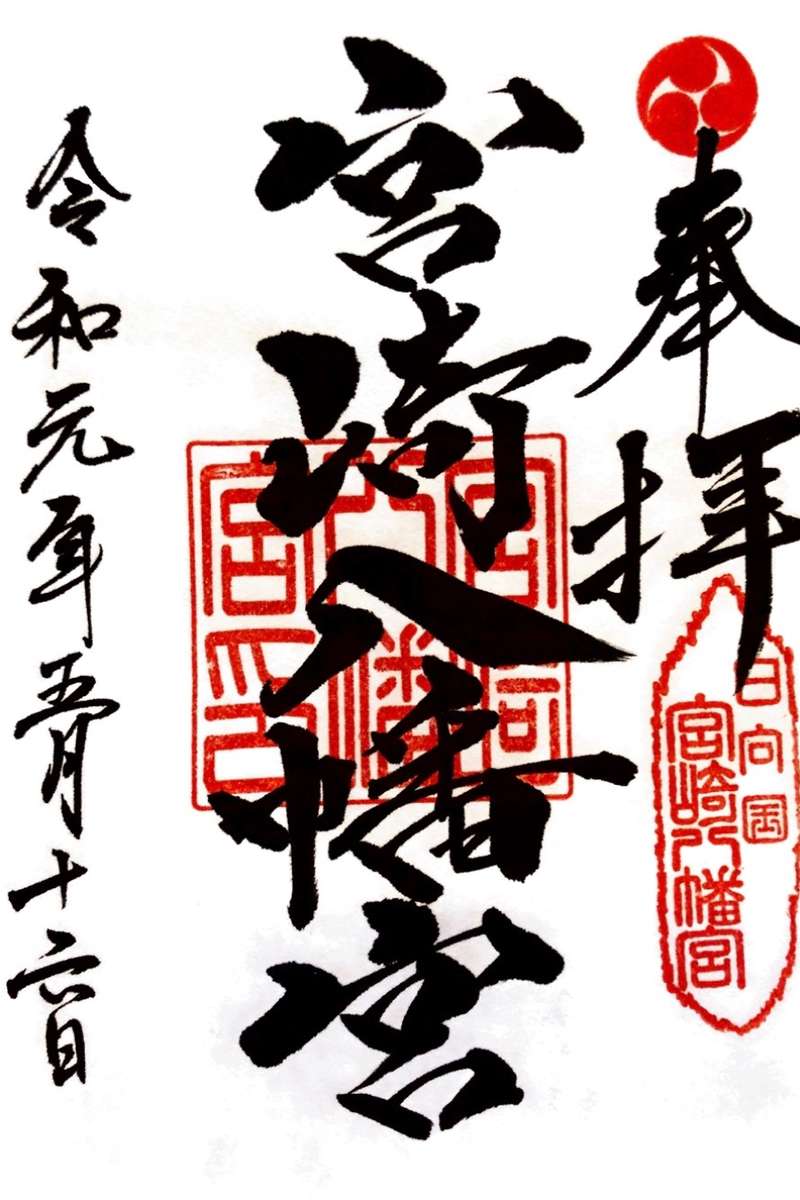 奉拝
日向国
宮崎八幡宮
宮崎八幡宮
宮崎八幡宮印
令和元年五月十六日